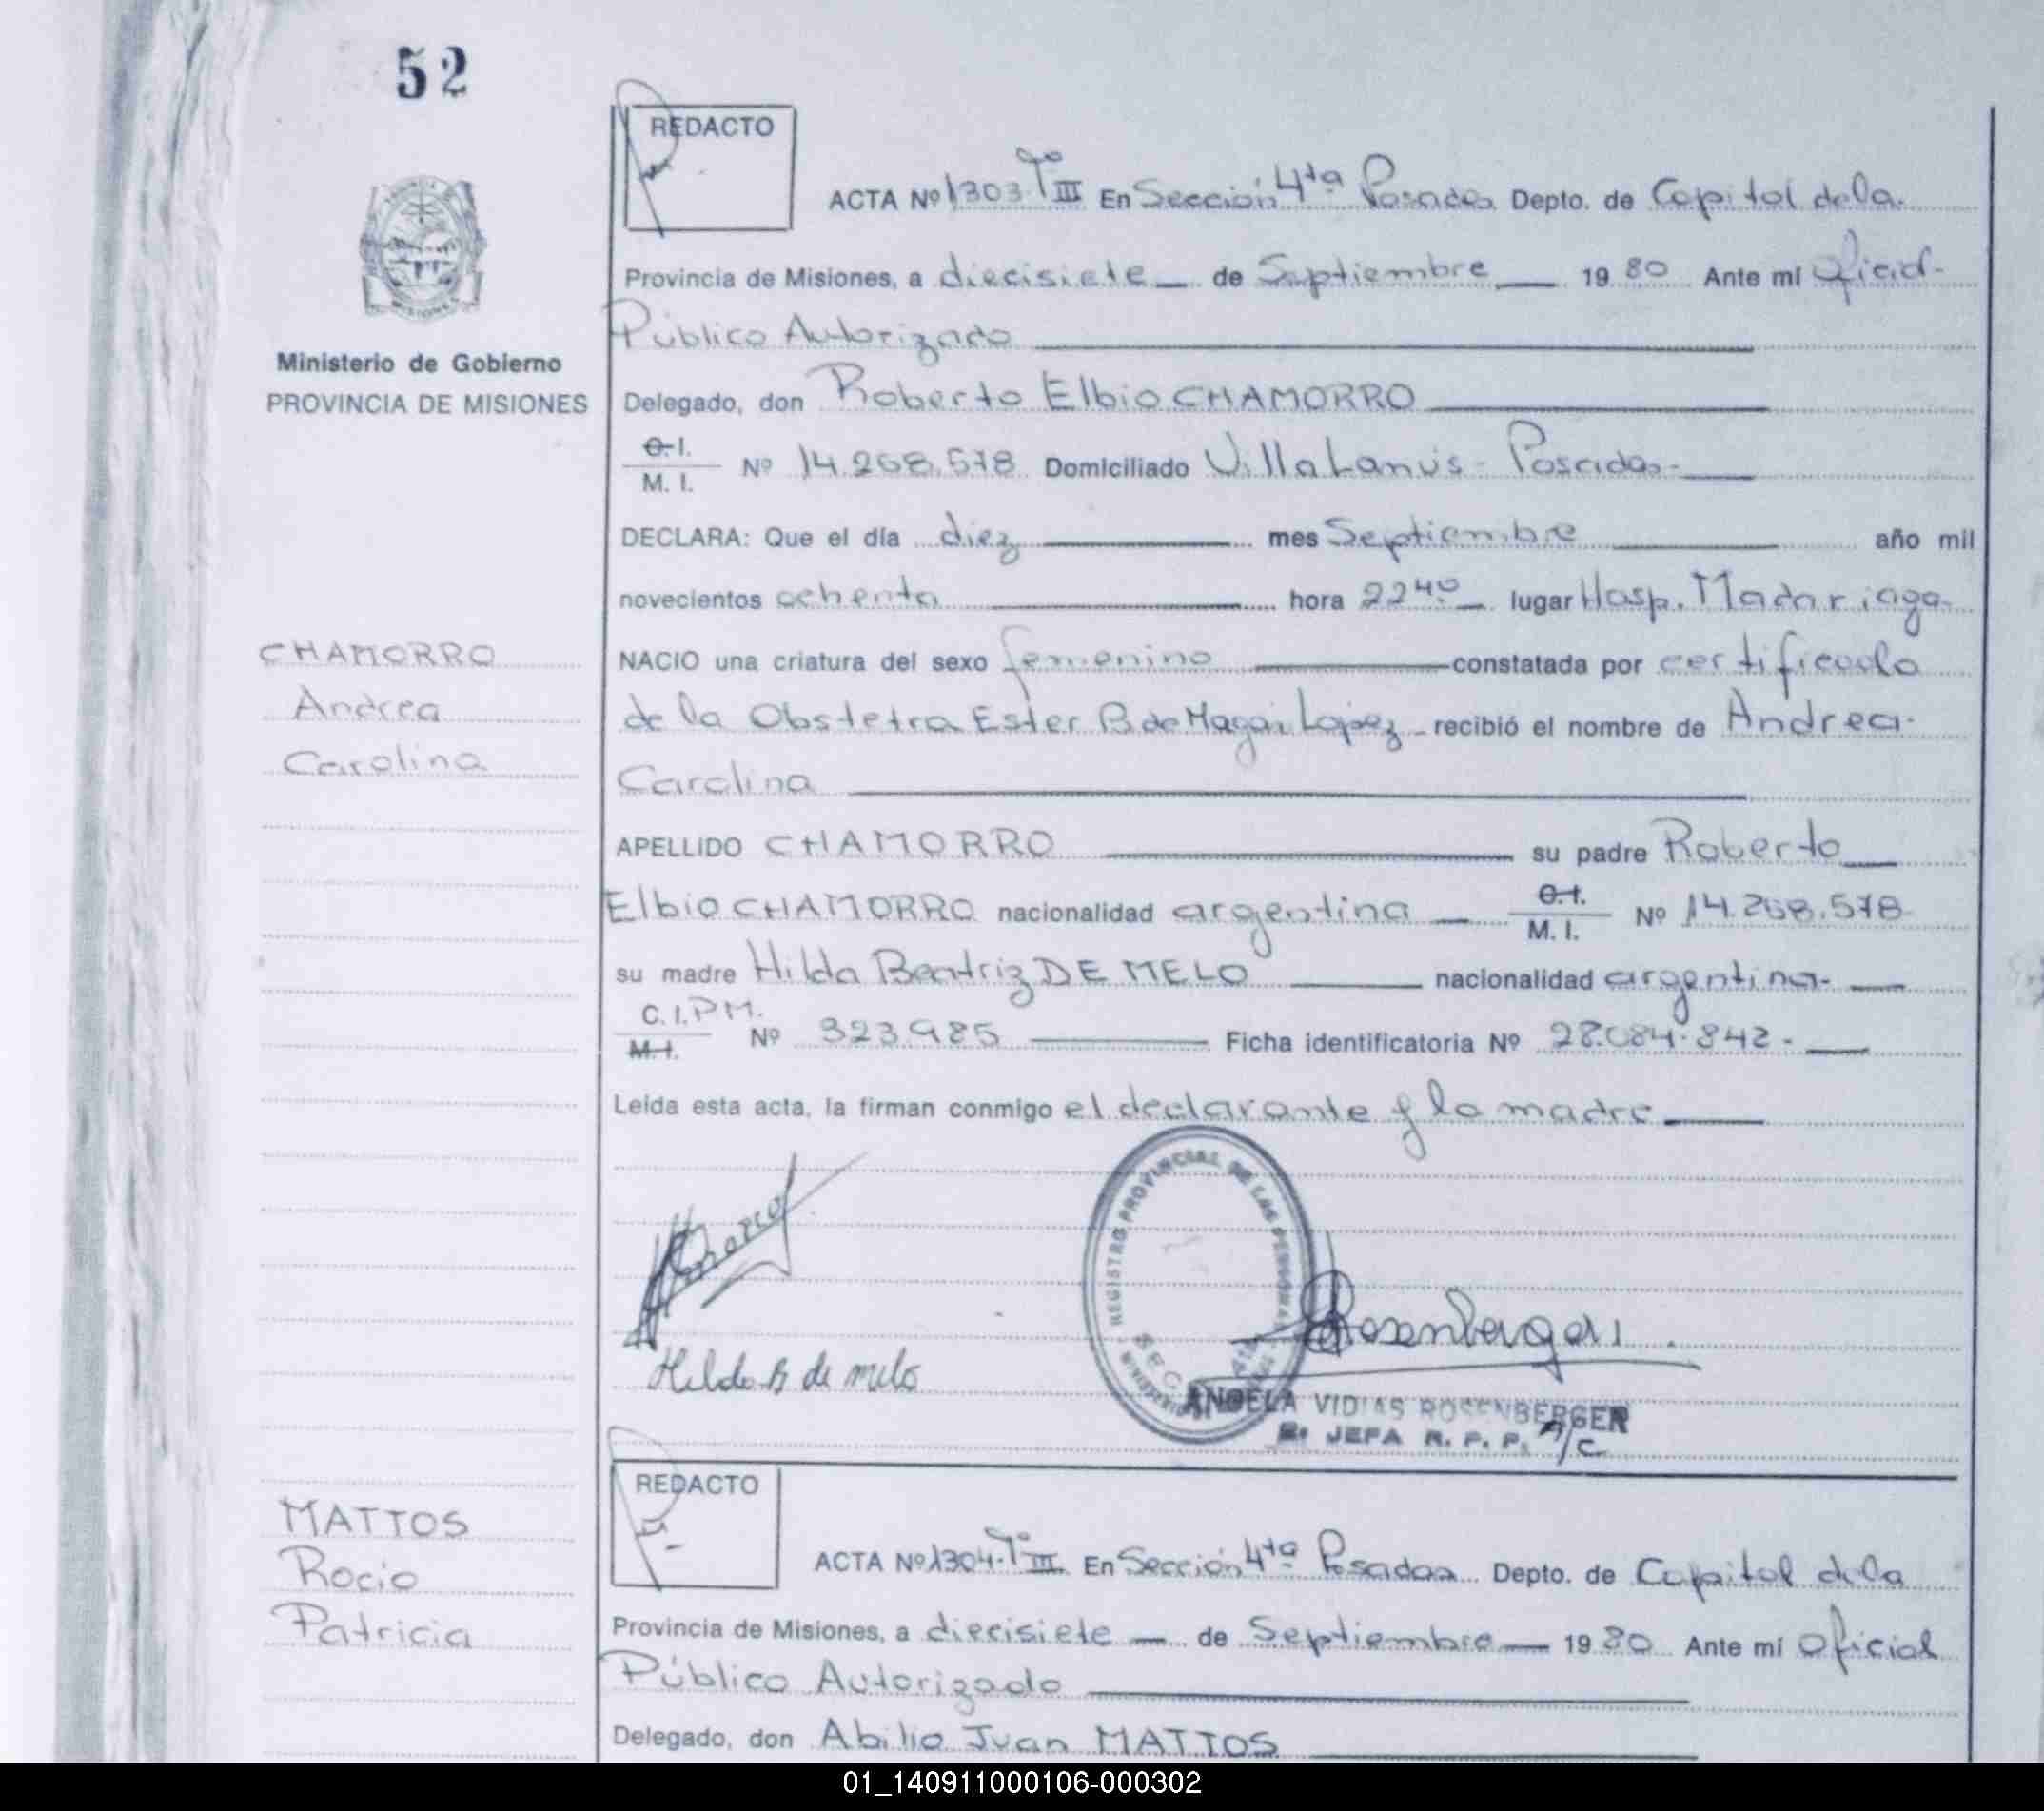 52
REDACTO
ACTA Nº 1303 Tº III En Sección 4ta Posadas Depto. de Capital de la
Provincia de Misiones, a diecisiete de Septiembre 1980 Ante mí Oficial
Público Autorizado
Ministerio de Gobierno
PROVINCIA DE MISIONES
Delegado, don Roberto Elbio CHAMORRO
C.I.
M. I. Nº 14.268.578 Domiciliado Villa Lanús - Posadas-
DECLARA: Que el día diez mes Septiembre año mil
novecientos ochenta hora 22 40 lugar Hosp. Madariaga
CHAMORRO
Andrea
Carolina
NACIO una criatura del sexo femenino constatada por certificado
de la Obstetra Ester B. de López recibió el nombre de Andrea
Carolina
APELLIDO CHAMORRO su padre Roberto
Elbio CHAMORRO nacionalidad argentina C.I. M. I. Nº 14.268.578
su madre Hilda Beatriz DE MELO nacionalidad argentina-
C. I. P.M.
M.I. Nº 323.985 Ficha identificatoria Nº 28.084.842-
Leída esta acta, la firman conmigo el declarante y la madre
REGISTRO PROVINCIAL DE LAS PERSONAS
SEC. 4ta
Hilda B de melo
Rosenberger
ANGELA VIDIAS ROSENBERGER
JEFA R. P. P. A/C
REDACTO
MATTOS
Rocio
Patricia
ACTA Nº 1304 Tº III En Sección 4ta Posadas Depto. de Capital de la
Provincia de Misiones, a diecisiete de Septiembre 1980 Ante mí Oficial
Público Autorizado
Delegado, don Abilio Juan MATTOS
01_140911000106-000302